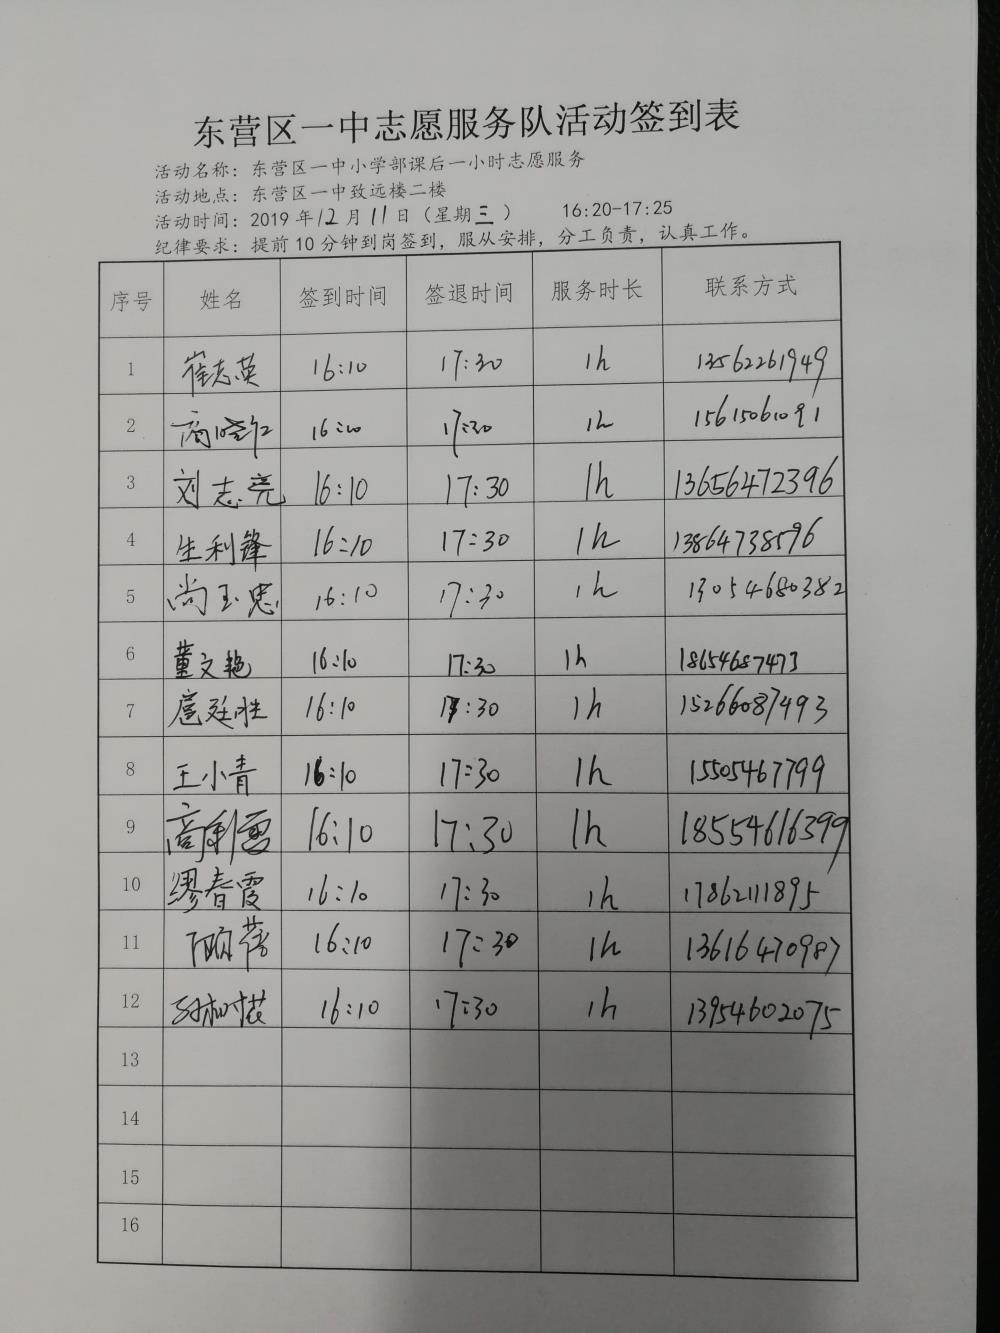 东营区一中志愿服务队活动签到表
活动名称：东营区一中小学部课后一小时志愿服务
活动地点：东营区一中致远楼二楼
活动时间：2019年12月11日（星期三） 16:20-17:25
纪律要求：提前10分钟到岗签到，服从安排，分工负责，认真工作。
序号 姓名 签到时间 签退时间 服务时长 联系方式
1 崔志英 16:10 17:30 1h 13562261949
2 16:10 17:30 1h 15615061091
3 刘志亮 16:10 17:30 1h 13656472396
4 生利锋 16:10 17:30 1h 13864738596
5 尚玉忠 16:10 17:30 1h 13054680382
6 董文艳 16:10 17:30 1h 18654687473
7 扈廷胜 16:10 17:30 1h 15266087493
8 王小青 16:10 17:30 1h 15505467799
9 高利雪 16:10 17:30 1h 18554616399
10 缪春霞 16:10 17:30 1h 17862111895
11 16:10 17:30 1h 13616470987
12 16:10 17:30 1h 13954602075
13
14
15
16